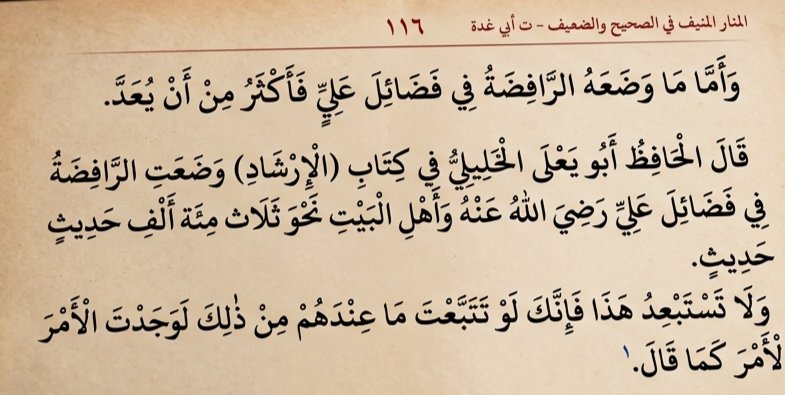 المنار المنيف في الصحيح والضعيف - ت أبي غدة ١١٦
وَأَمَّا مَا وَضَعَهُ الرَّافِضَةُ فِي فَضَائِلَ عَلِيٍّ فَأَكْثَرُ مِنْ أَنْ يُعَدَّ.
قَالَ الْحَافِظُ أَبُو يَعْلَى الْخَلِيلِيُّ فِي كِتَابِ (الْإِرْشَادِ) وَضَعَتِ الرَّافِضَةُ
فِي فَضَائِلَ عَلِيِّ رَضِيَ اللهُ عَنْهُ وَأَهْلِ الْبَيْتِ نَحْوَ ثَلَاث مِئَة أَلْفِ حَدِيثٍ
حَدِيثٍ.
وَلَا تَسْتَبْعِدُ هَذَا فَإِنَّكَ لَوْ تَتَبَّعْتَ مَا عِنْدَهُمْ مِنْ ذٰلِكَ لَوَجَدْتَ الْأَمْرَ
لْأَمْرَ كَمَا قَالَ.١